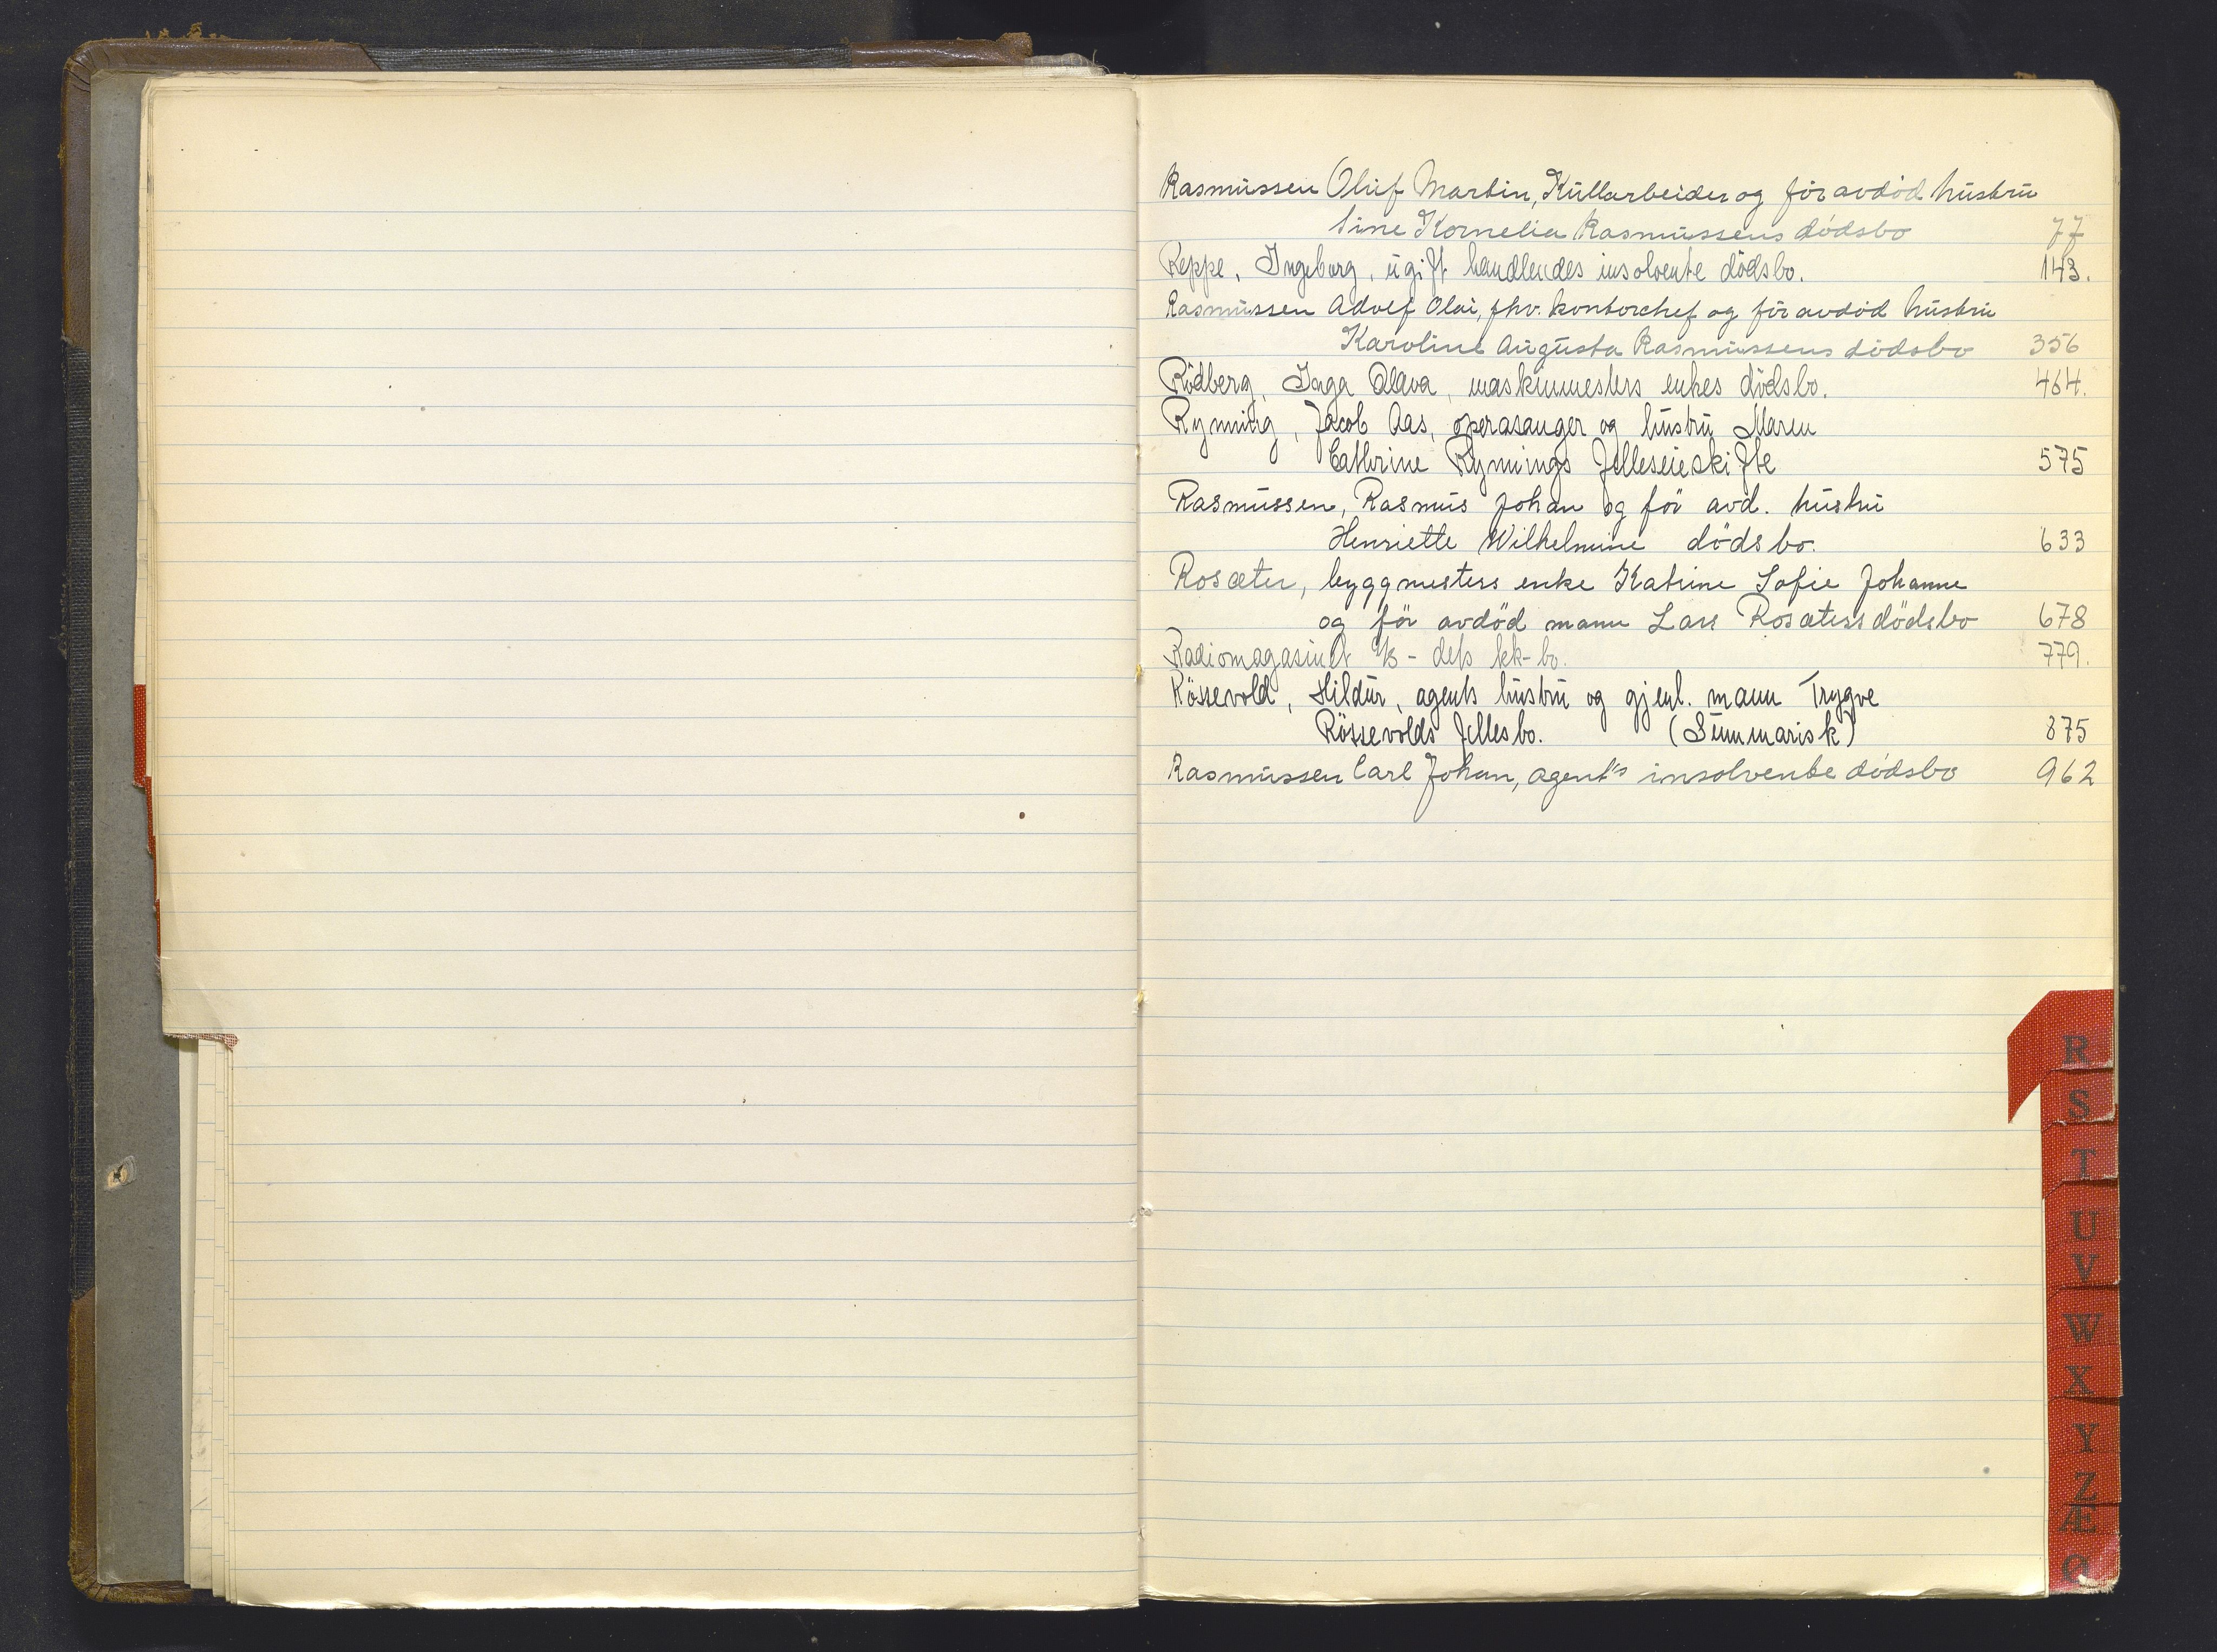 Rasmussen Oluf Martin, Kullarbeider og før avdød hustru
Sine Kornelia Rasmussens dødsbo 77
Reppe, Ingeborg, ugift handlendes insolvente dødsbo. 143.
Rasmussen Adolf Olai, fhv. kontorchef og før avdød hustru
Karoline Augusta Rasmussens dødsbo 356
Rødberg, Inga Olava, maskinmesters enkes dødsbo. 464.
Rynning, Jacob Aas, operasanger og hustru Maren
Cathrine Rynnings felleseieskifte 575
Rasmussen, Rasmus Johan og før avd. hustru
Henriette Wilhelmine dødsbo. 633
Rosæter, byggmesters enke Katrine Sofie Johanne
og før avdød mann Lars Rosæters dødsbo 678
Radiomagasinet A/S - dets kk-bo. 779.
Røssevold, Hildur, agents hustru og gjenl. mann Trygve
Røssevolds fellesbo. (Summarisk) 875
Rasmussen Carl Johan, agent's insolvente dødsbo 962
R
S
T
U
V
W
X
Y
Z
Æ
Ø